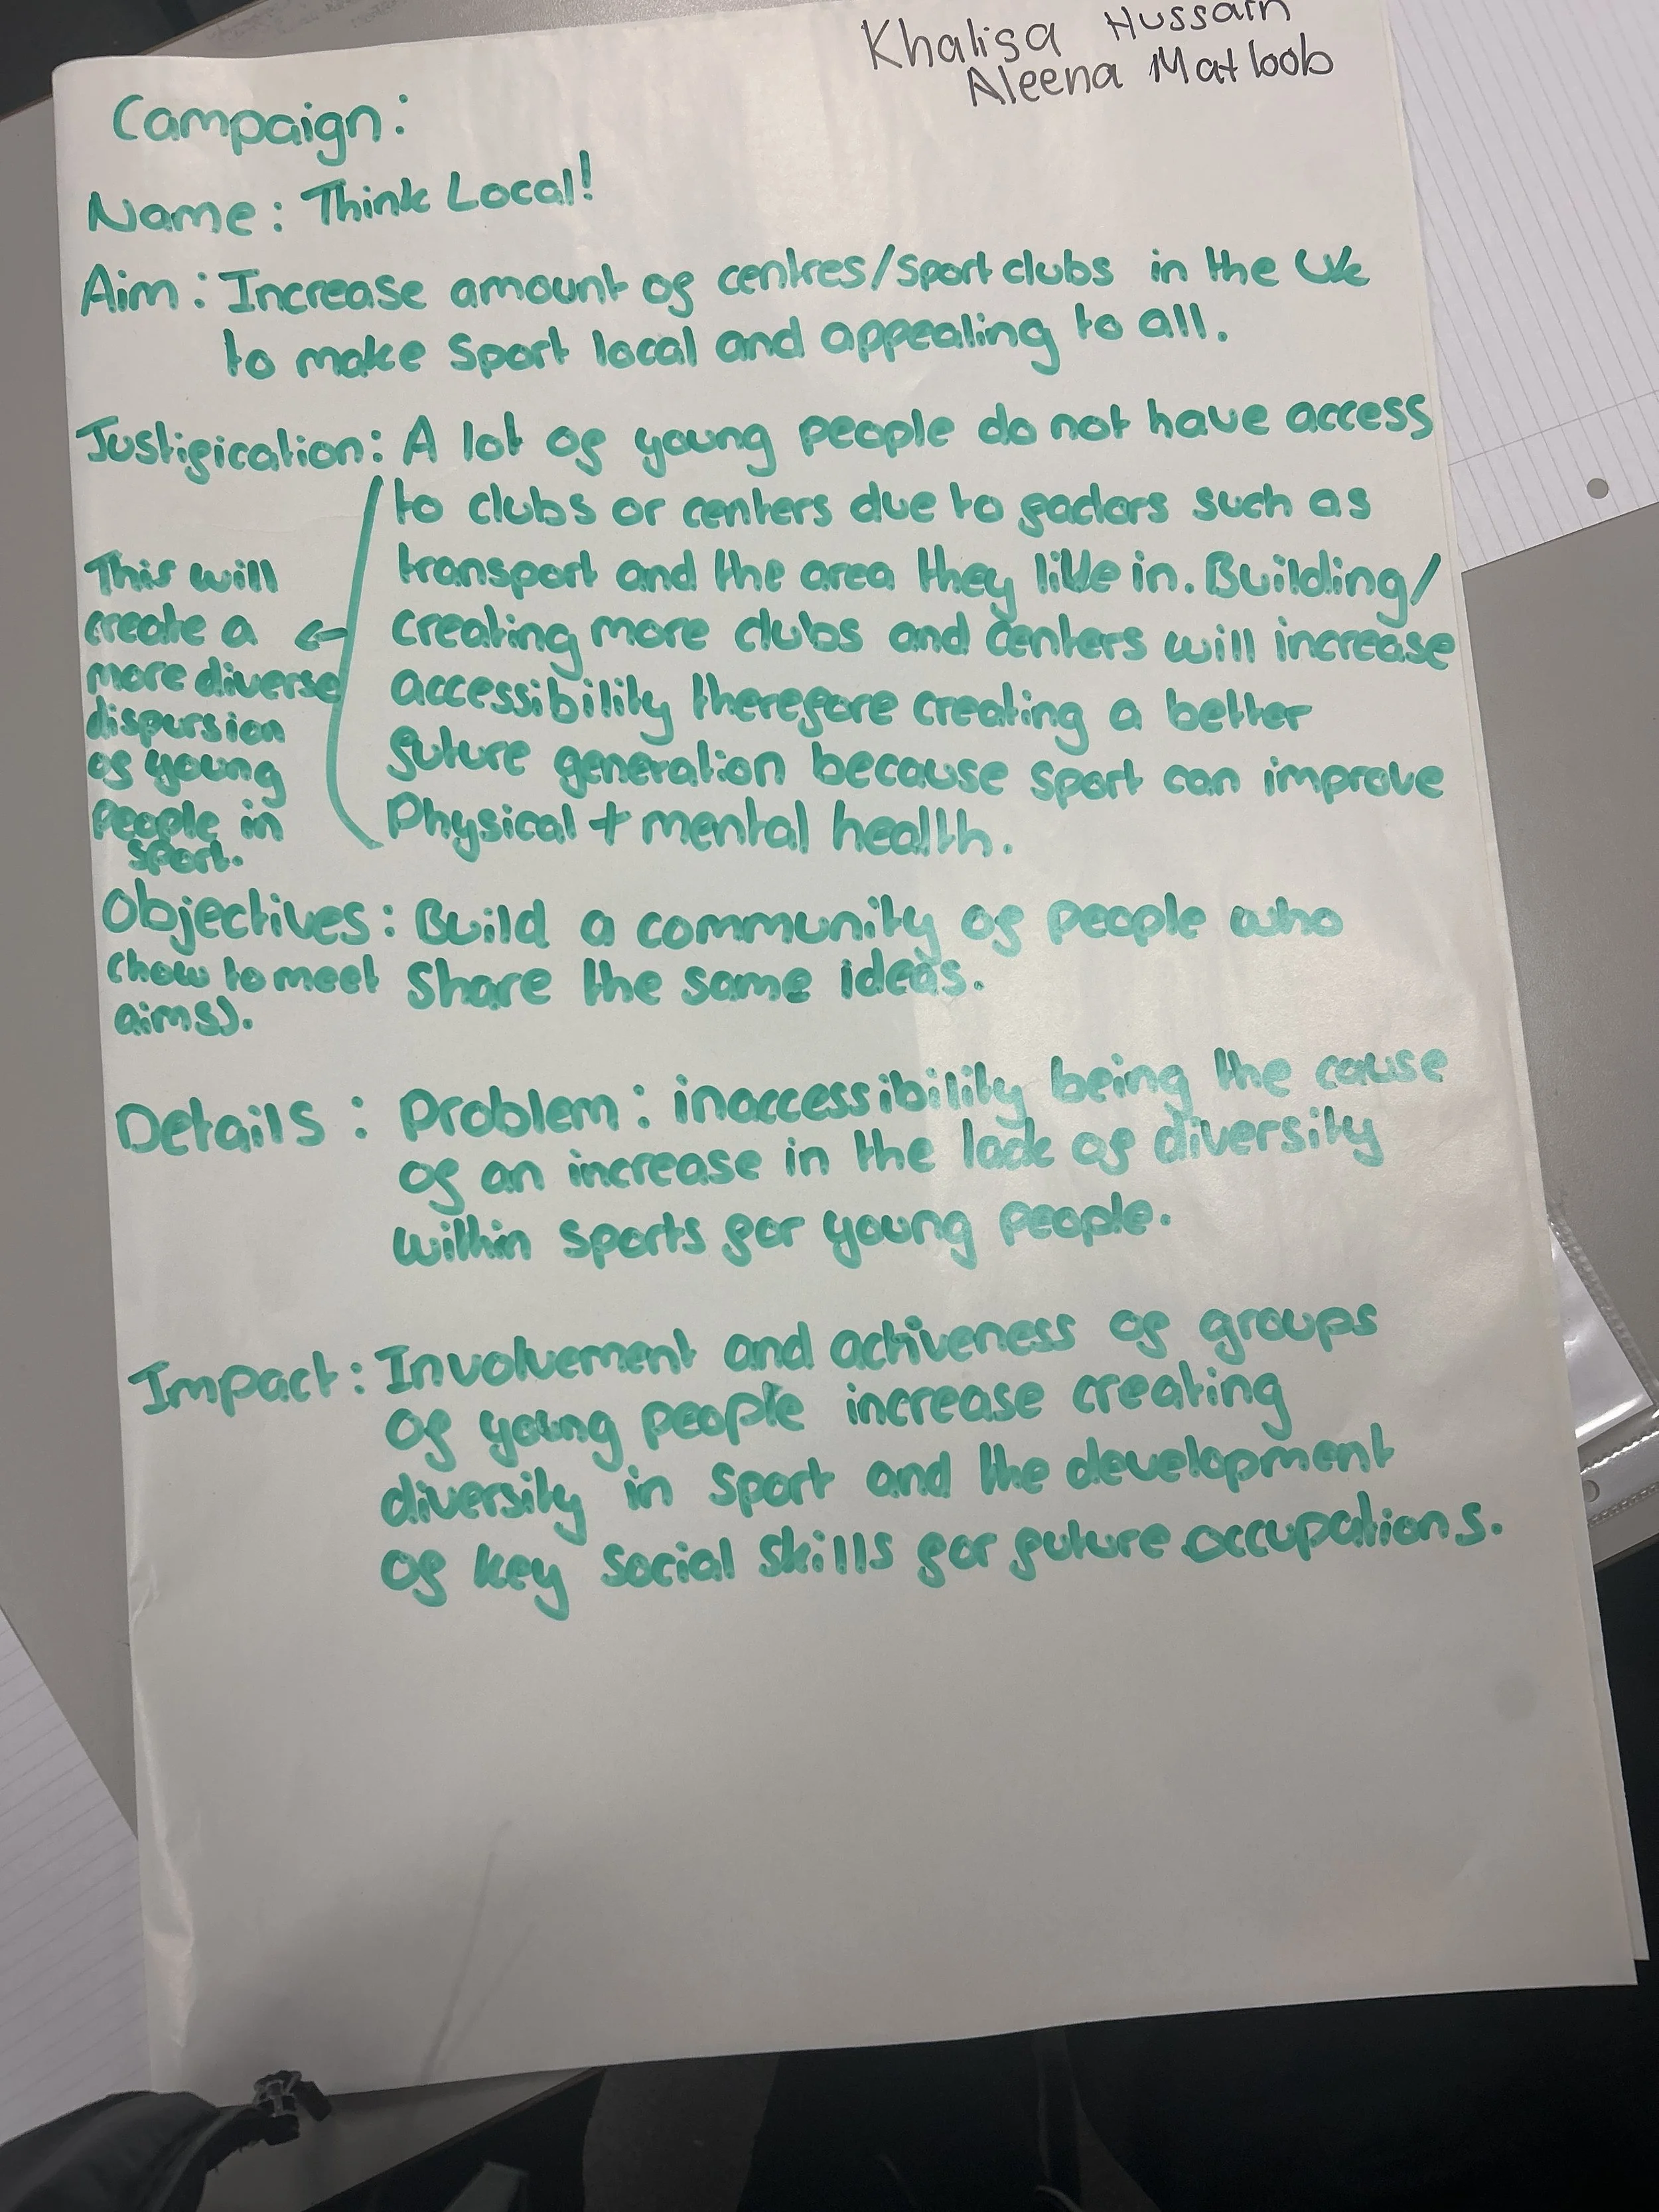 Khalisa Hussain
Aleena Matloob
Campaign:
Name: Think Local!
Aim: Increase amount of centres/sport clubs in the UK
to make sport local and appealing to all.
Justification: A lot of young people do not have access
to clubs or centers due to factors such as
transport and the area they live in. Building/
creating more clubs and centers will increase
accessibility therefore creating a better
future generation because sport can improve
Physical + mental health.
This will
create a ←
more diverse
dispursion
of young
people in
sport.
Objectives: Build a community of people who
(how to meet share the same ideas.
aims).
Details: Problem: inaccessibility being the cause
of an increase in the lack of diversity
within sports for young people.
Impact: Involvement and activeness of groups
of young people increase creating
diversity in sport and the development
of key social skills for future occupations.